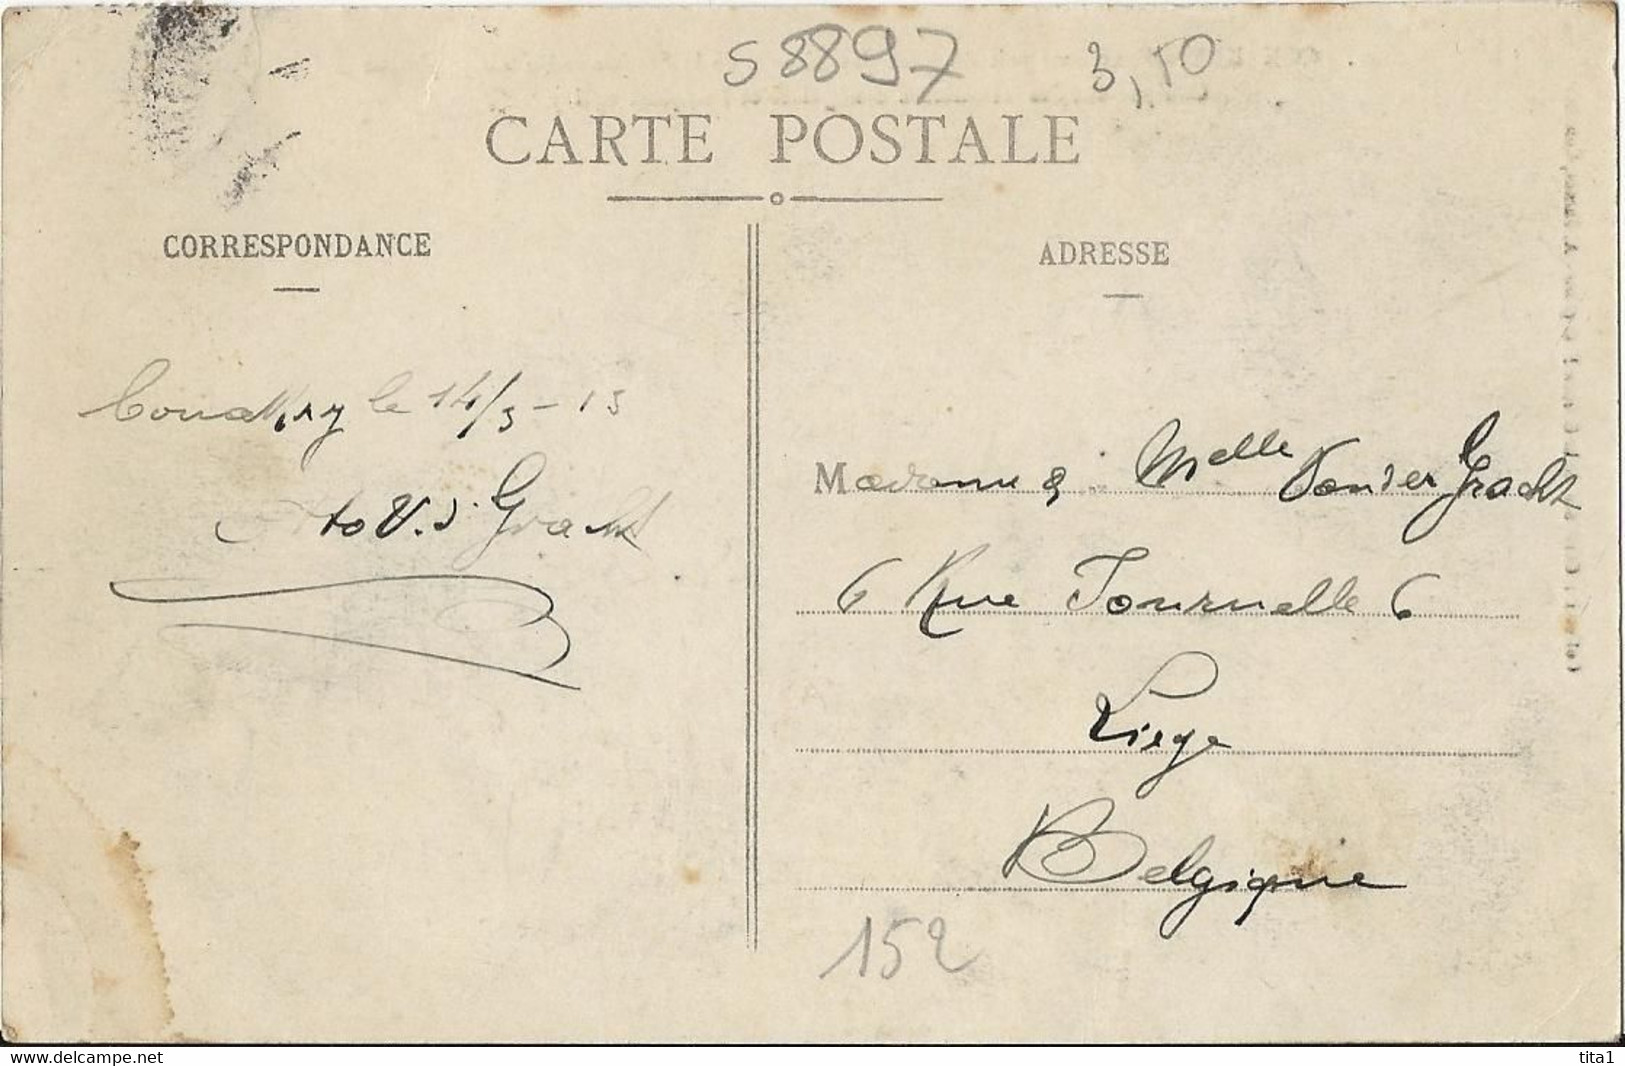 S 8897 3,50
CARTE POSTALE
CORRESPONDANCE
ADRESSE
Conakry le 14/3-13
V. d. Gracht
Madame & Melle Vander Gracht
6 Rue Tournelle 6
Liege
Belgique
152
delcampe.net
tita1